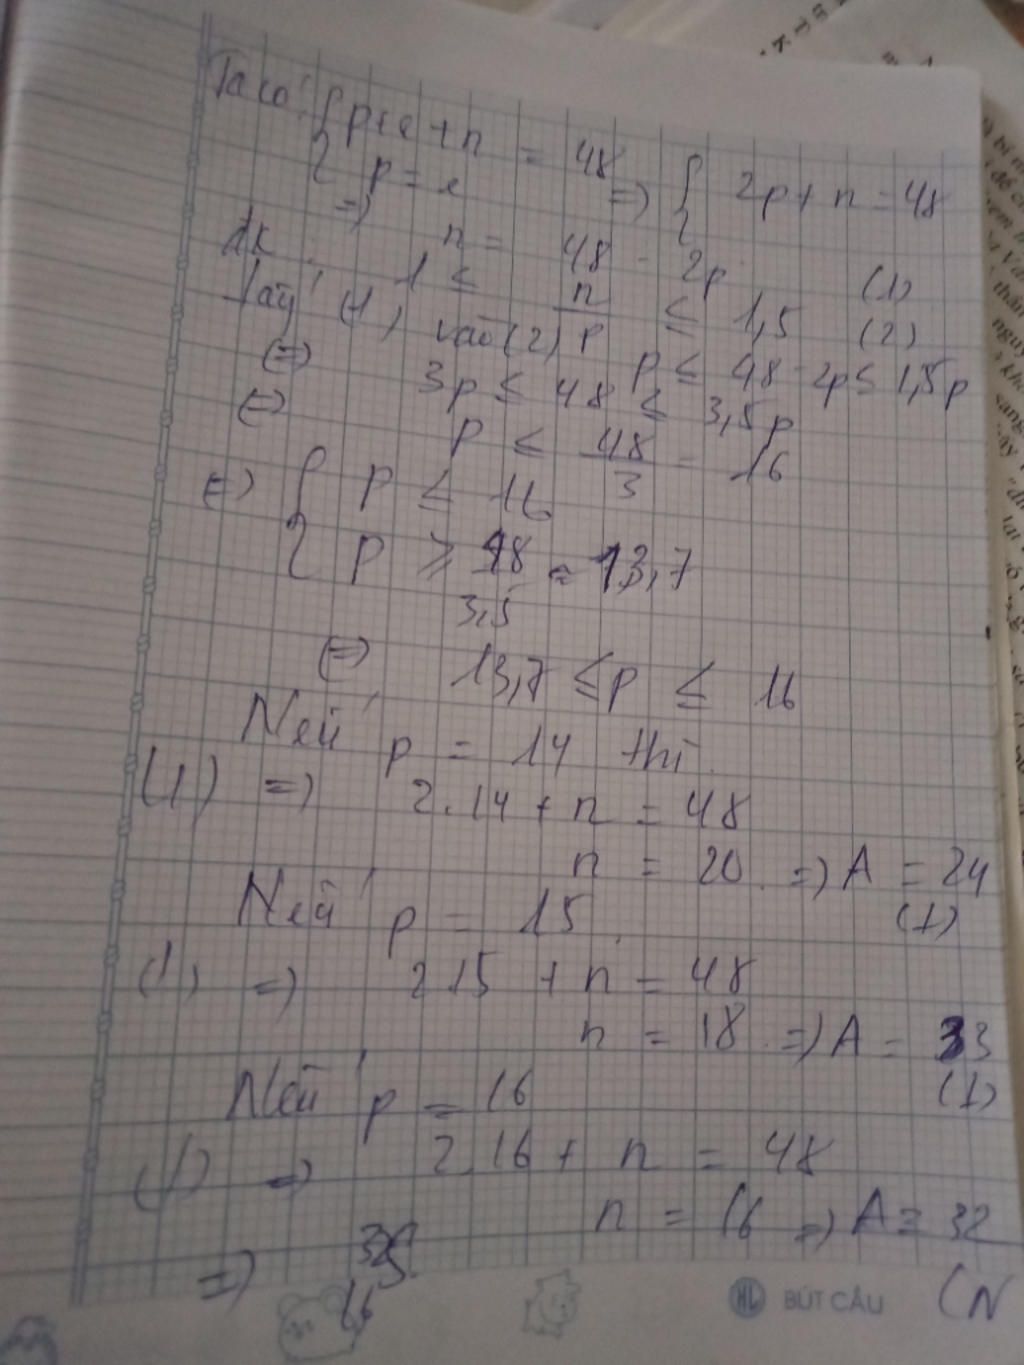 Ta có: { p+e+n = 48 => { 2p+n=48
p=e
=> n = 48 - 2p (1)
đk: 1 ≤ n/p ≤ 1,5 (2)
lấy (1) vào (2) p ≤ 48-2p ≤ 1,5p
(=) 3p ≤ 48 ≤ 3,5p
(=) p ≤ 48/3 = 16
(=) { p ≤ 16
p ≥ 48/3,5 = 13,7
(=) 13,7 ≤ p ≤ 16
Nếu p = 14 thì
(1) => 2.14 + n = 48
n = 20 => A = 24
(1)
Nếu p = 15
(1) => 2.15 + n = 48
n = 18 => A = 33
(1)
Nếu p = 16
(1) => 2.16 + n = 48
n = 16 => A = 32
(N
=> 32
16
HL BÚT CÂU